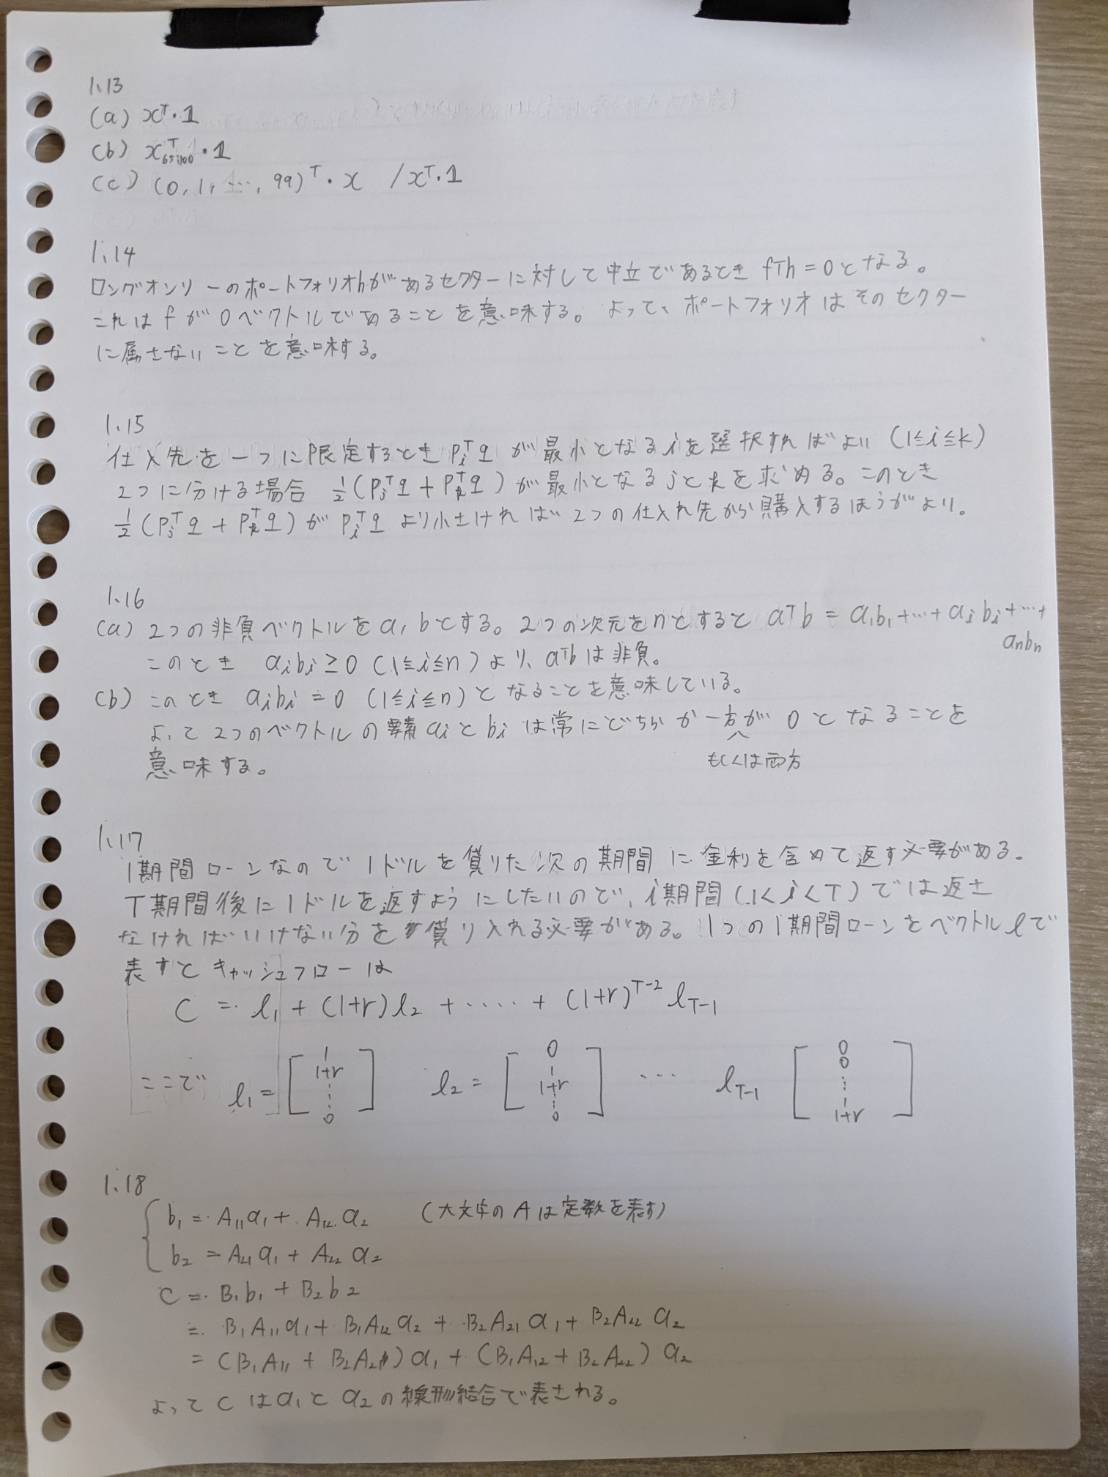 1.13
(a) xᵀ・1
(b) xᵀ₆₅:₁₀₀・1
(c) (0, 1, …, 99)ᵀ・x / xᵀ・1
1.14
ロングオンリーのポートフォリオhがあるセクターに対して中立であるとき fᵀh = 0となる。
これは f が 0ベクトルであることを意味する。よって、ポートフォリオはそのセクター
に属さないことを意味する。
1.15
仕入先を一つに限定するとき Pᵢᵀq が最小となる i を選択すればよい (1≤i≤k)
2つに分ける場合 ½(Pⱼᵀq + Pₖᵀq) が最小となる j と k を求める。このとき
½(Pⱼᵀq + Pₖᵀq) が Pᵢᵀq より小さければ 2つの仕入れ先から購入するほうがよい。
1.16
(a) 2つの非負ベクトルを a, b とする。2つの次元をnとすると aᵀb = a₁b₁+…+aᵢbᵢ+…+
aₙbₙ
このとき aᵢbᵢ ≥ 0 (1≤i≤n) より、aᵀb は非負。
(b) このとき aᵢbᵢ = 0 (1≤i≤n) となることを意味している。
よって 2つのベクトルの要素 aᵢ と bᵢ は常にどちらか一方が 0 となることを
もしくは両方
意味する。
1.17
1期間ローンなので 1ドルを貸りた次の期間に金利を含めて返す必要がある。
T期間後に 1ドルを返すようにしたいので、i期間 (1<i<T) では返さ
なければいけない分を貸り入れる必要がある。1つの1期間ローンをベクトル l で
表すとキャッシュフローは
C = l₁ + (1+r)l₂ + ..... + (1+r)ᵀ⁻² l_T-1
ここで l₁ = [1 1+r ⋮ 0] l₂ = [0 1 1+r ⋮ 0] … l_T-1 [0 0 ⋮ 1 1+r]
1.18
b₁ = A₁₁a₁ + A₁₂a₂ (大文字の A は定数を表す)
b₂ = A₂₁a₁ + A₂₂a₂
C = B₁b₁ + B₂b₂
= B₁A₁₁a₁ + B₁A₁₂a₂ + B₂A₂₁a₁ + B₂A₂₂a₂
= (B₁A₁₁ + B₂A₂₁)a₁ + (B₁A₁₂ + B₂A₂₂)a₂
よって C は a₁ と a₂ の線形結合で表される。